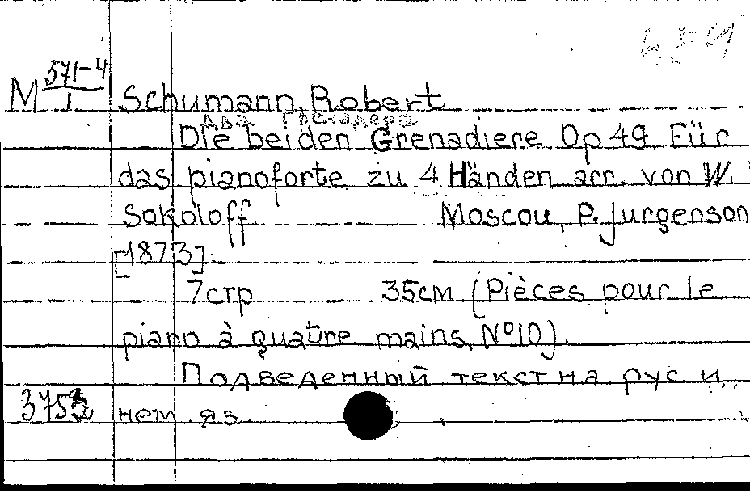 M 571-4
1
Schumann, Robert
Два Гренадера
Die beiden Grenadiere Op 49 Für
das pianoforte zu 4 Händen arr. von W.
Sokoloff Moscou, P. Jurgenson
[1873].
7стр 35см (Pièces pour le
piano à quatre mains, Nº10)
Подведенный текст на рус и
3753 нем яз.